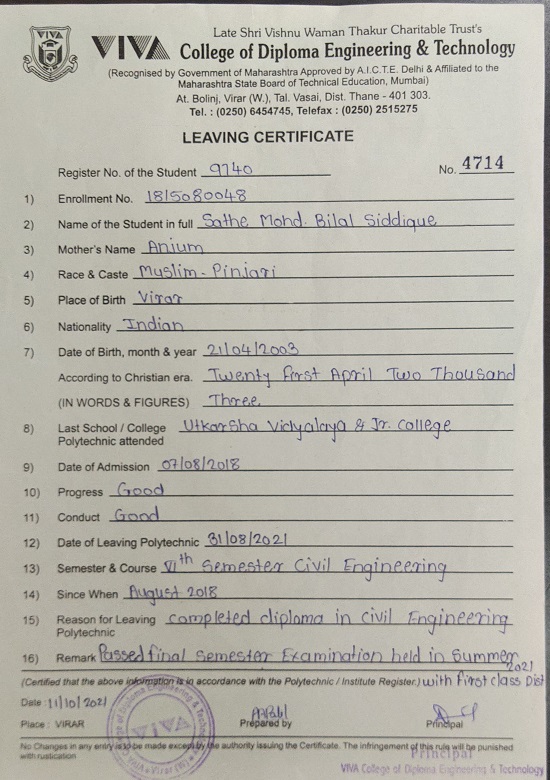 Late Shri Vishnu Waman Thakur Charitable Trust's
VIVA College of Diploma Engineering & Technology
(Recognised by Government of Maharashtra Approved by A.I.C.T.E. Delhi & Affiliated to the
Maharashtra State Board of Technical Education, Mumbai)
At. Bolinj, Virar (W.), Tal. Vasai, Dist. Thane - 401 303.
Tel. : (0250) 6454745, Telefax : (0250) 2515275
LEAVING CERTIFICATE
Register No. of the Student 9740 No. 4714
1) Enrollment No. 1815080048
2) Name of the Student in full Sathe Mohd. Bilal Siddique
3) Mother's Name Anium
4) Race & Caste Muslim - Pinjari
5) Place of Birth Virar
6) Nationality Indian
7) Date of Birth, month & year 21/04/2003
According to Christian era. Twenty first April Two Thousand
(IN WORDS & FIGURES) Three
8) Last School / College Utkarsha Vidyalaya & Jr. college
Polytechnic attended
9) Date of Admission 07/08/2018
10) Progress Good
11) Conduct Good
12) Date of Leaving Polytechnic 31/08/2021
13) Semester & Course VIth Semester Civil Engineering
14) Since When August 2018
15) Reason for Leaving completed diploma in civil Engineering
Polytechnic
16) Remark Passed final semester Examination held in Summer
2021
(Certified that the above information is in accordance with the Polytechnic / Institute Register.) with first class Dist
Date : 11/10/2021
Place : VIRAR Prepared by Principal
No Changes in any entry is to be made except by the authority issuing the Certificate. The infringement of this rule will be punished
with rustication
Principal
VIVA College of Diploma Engineering & Technology